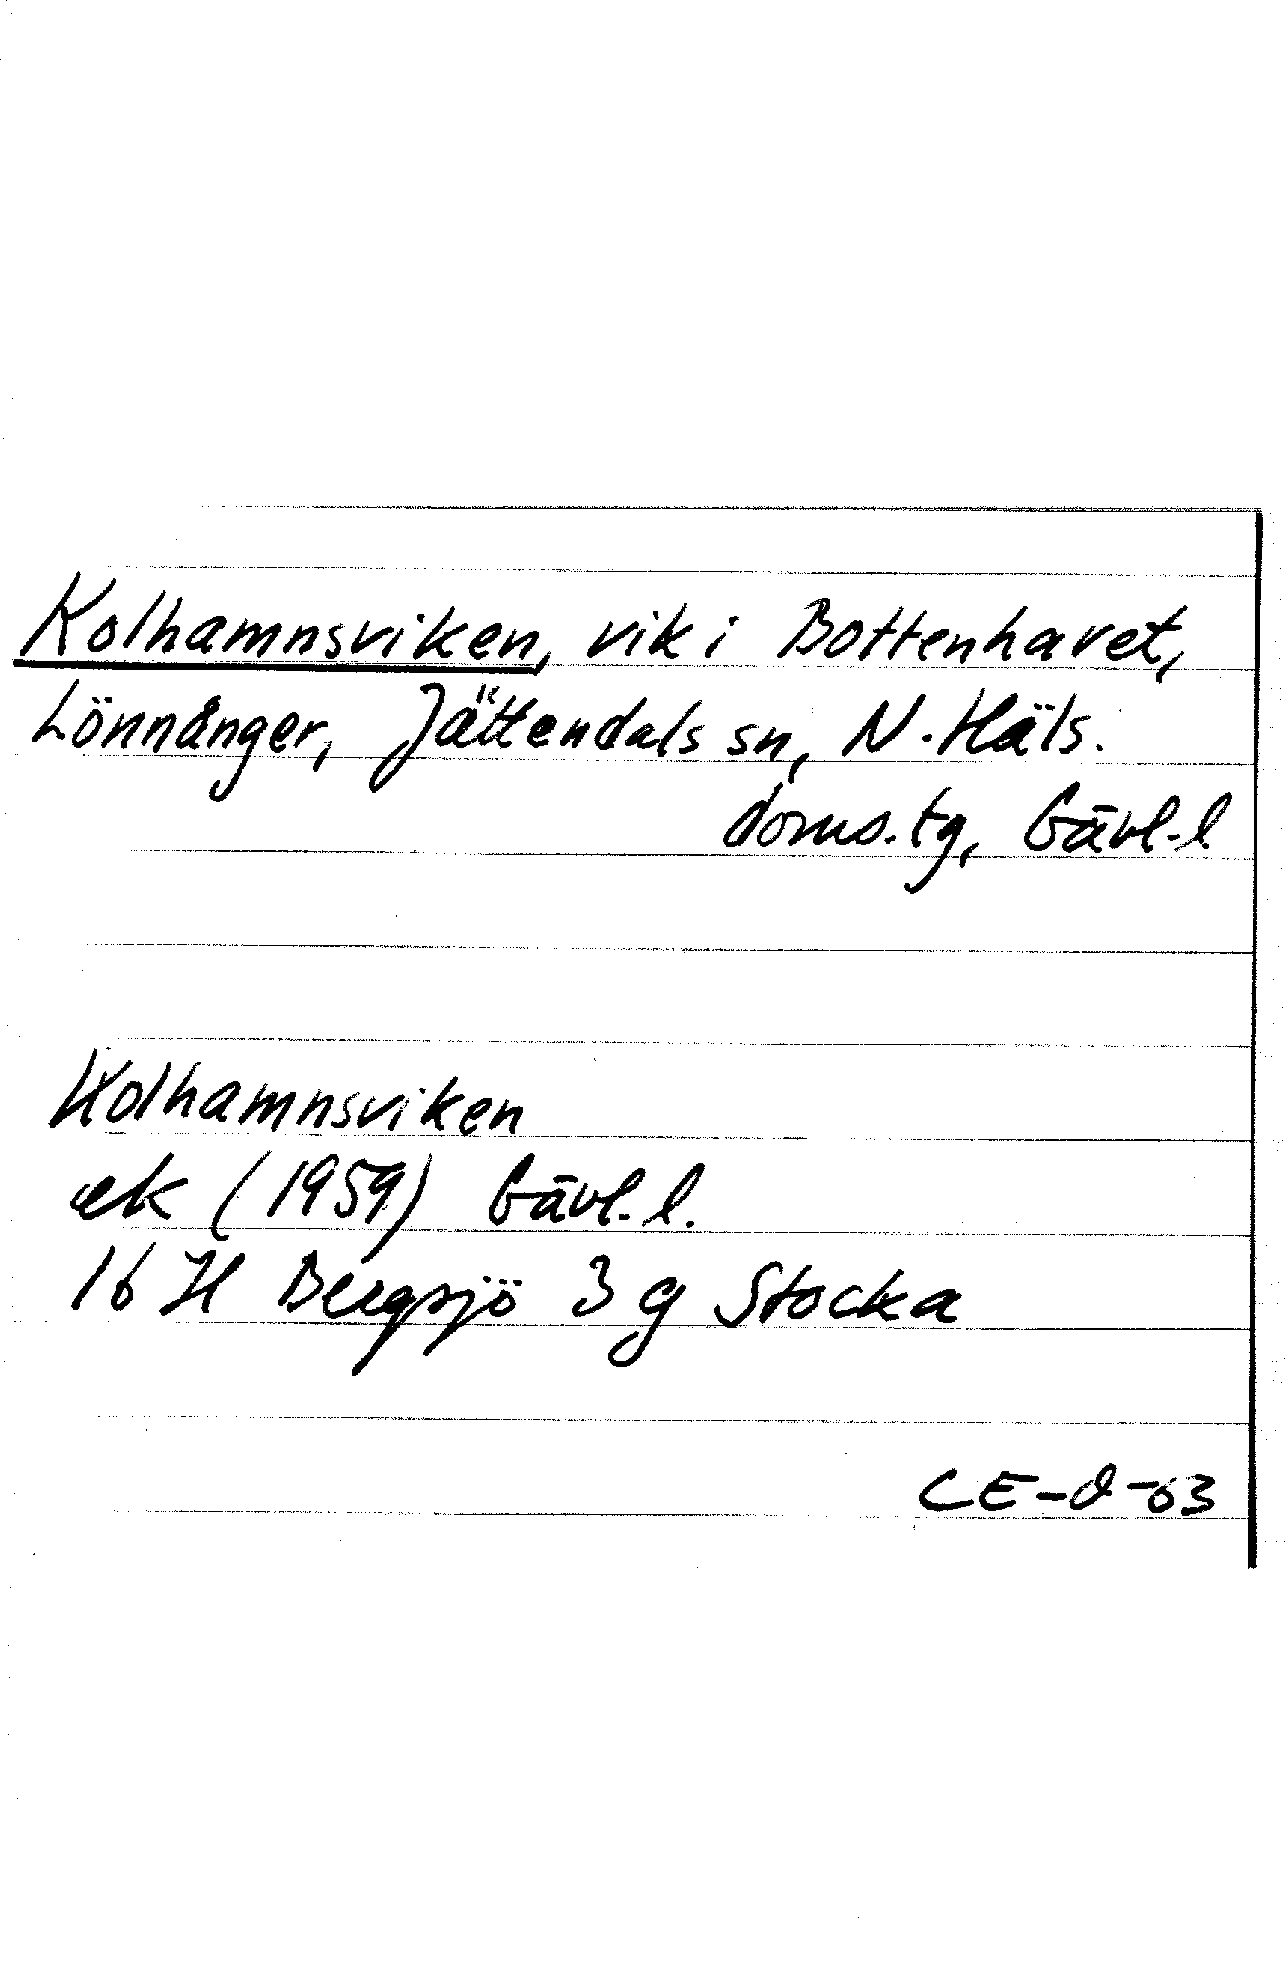 Kolhamnsviken, vik i Bottenhavet,
Lönnånger, Jättendals sn, N. Häls.
doms.tg, Gävl.l
Kolhamnsviken
ek (1959) Gävl.l.
16 H Bergsjö 3 g Stocka
CE-d-63